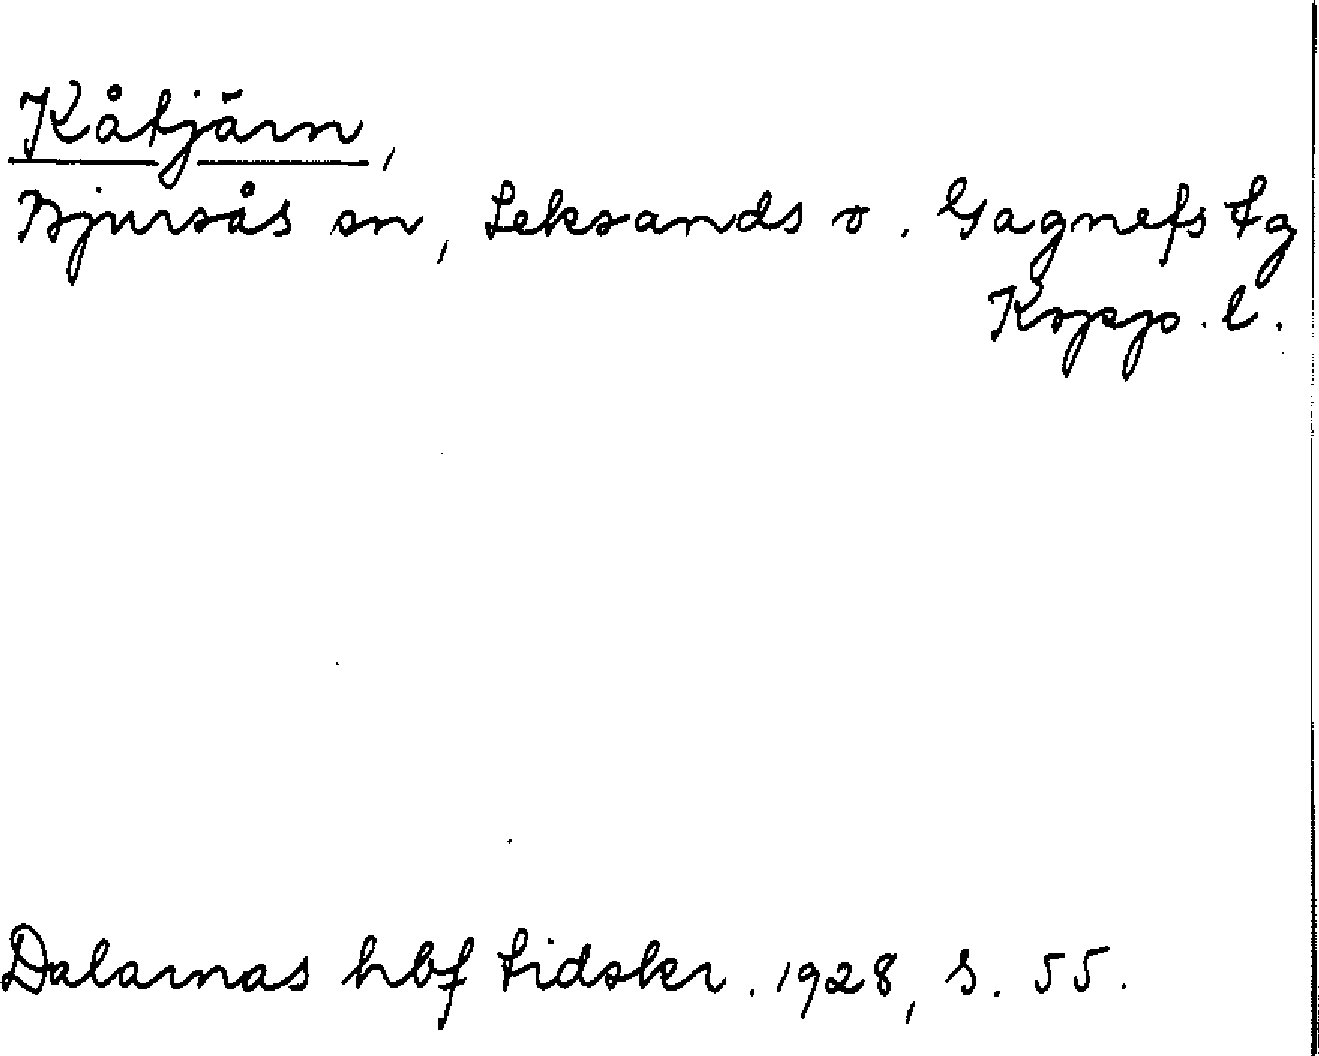 Kåtjärn,
Bjursås sn, Leksands o. Gagnefs tg
Kopp. l.
Dalarnas hbf tidskr. 1928, s. 55.